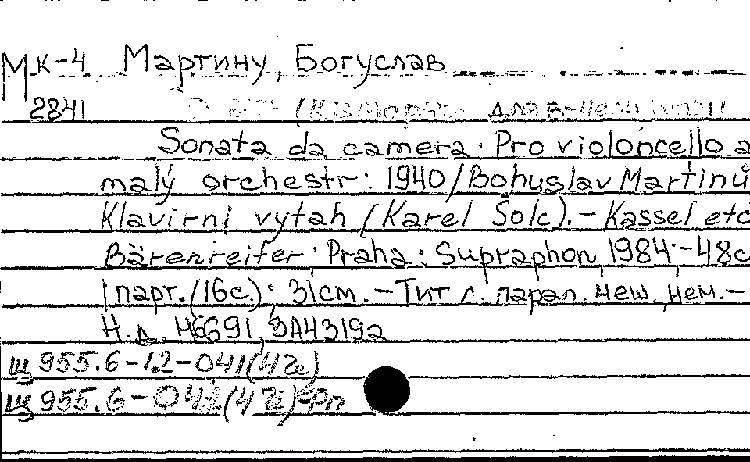 Мк-4 Мартину, Богуслав
2841
Sonata da camera: Pro violoncello a
malý orchestr: 1940/Bohuslav Martinů
Klavirni vytah (Karel Šolc).-Kassel etc
Bärenreiter: Praha: Supraphon 1984-48с
1парт.(16с.): 31см.-Тит л. парал. чеш, нем.-
Н.д. H6691, BA4319a
щ 955.6-1.2-041(4Че)
щ 955.6-042(4Че)